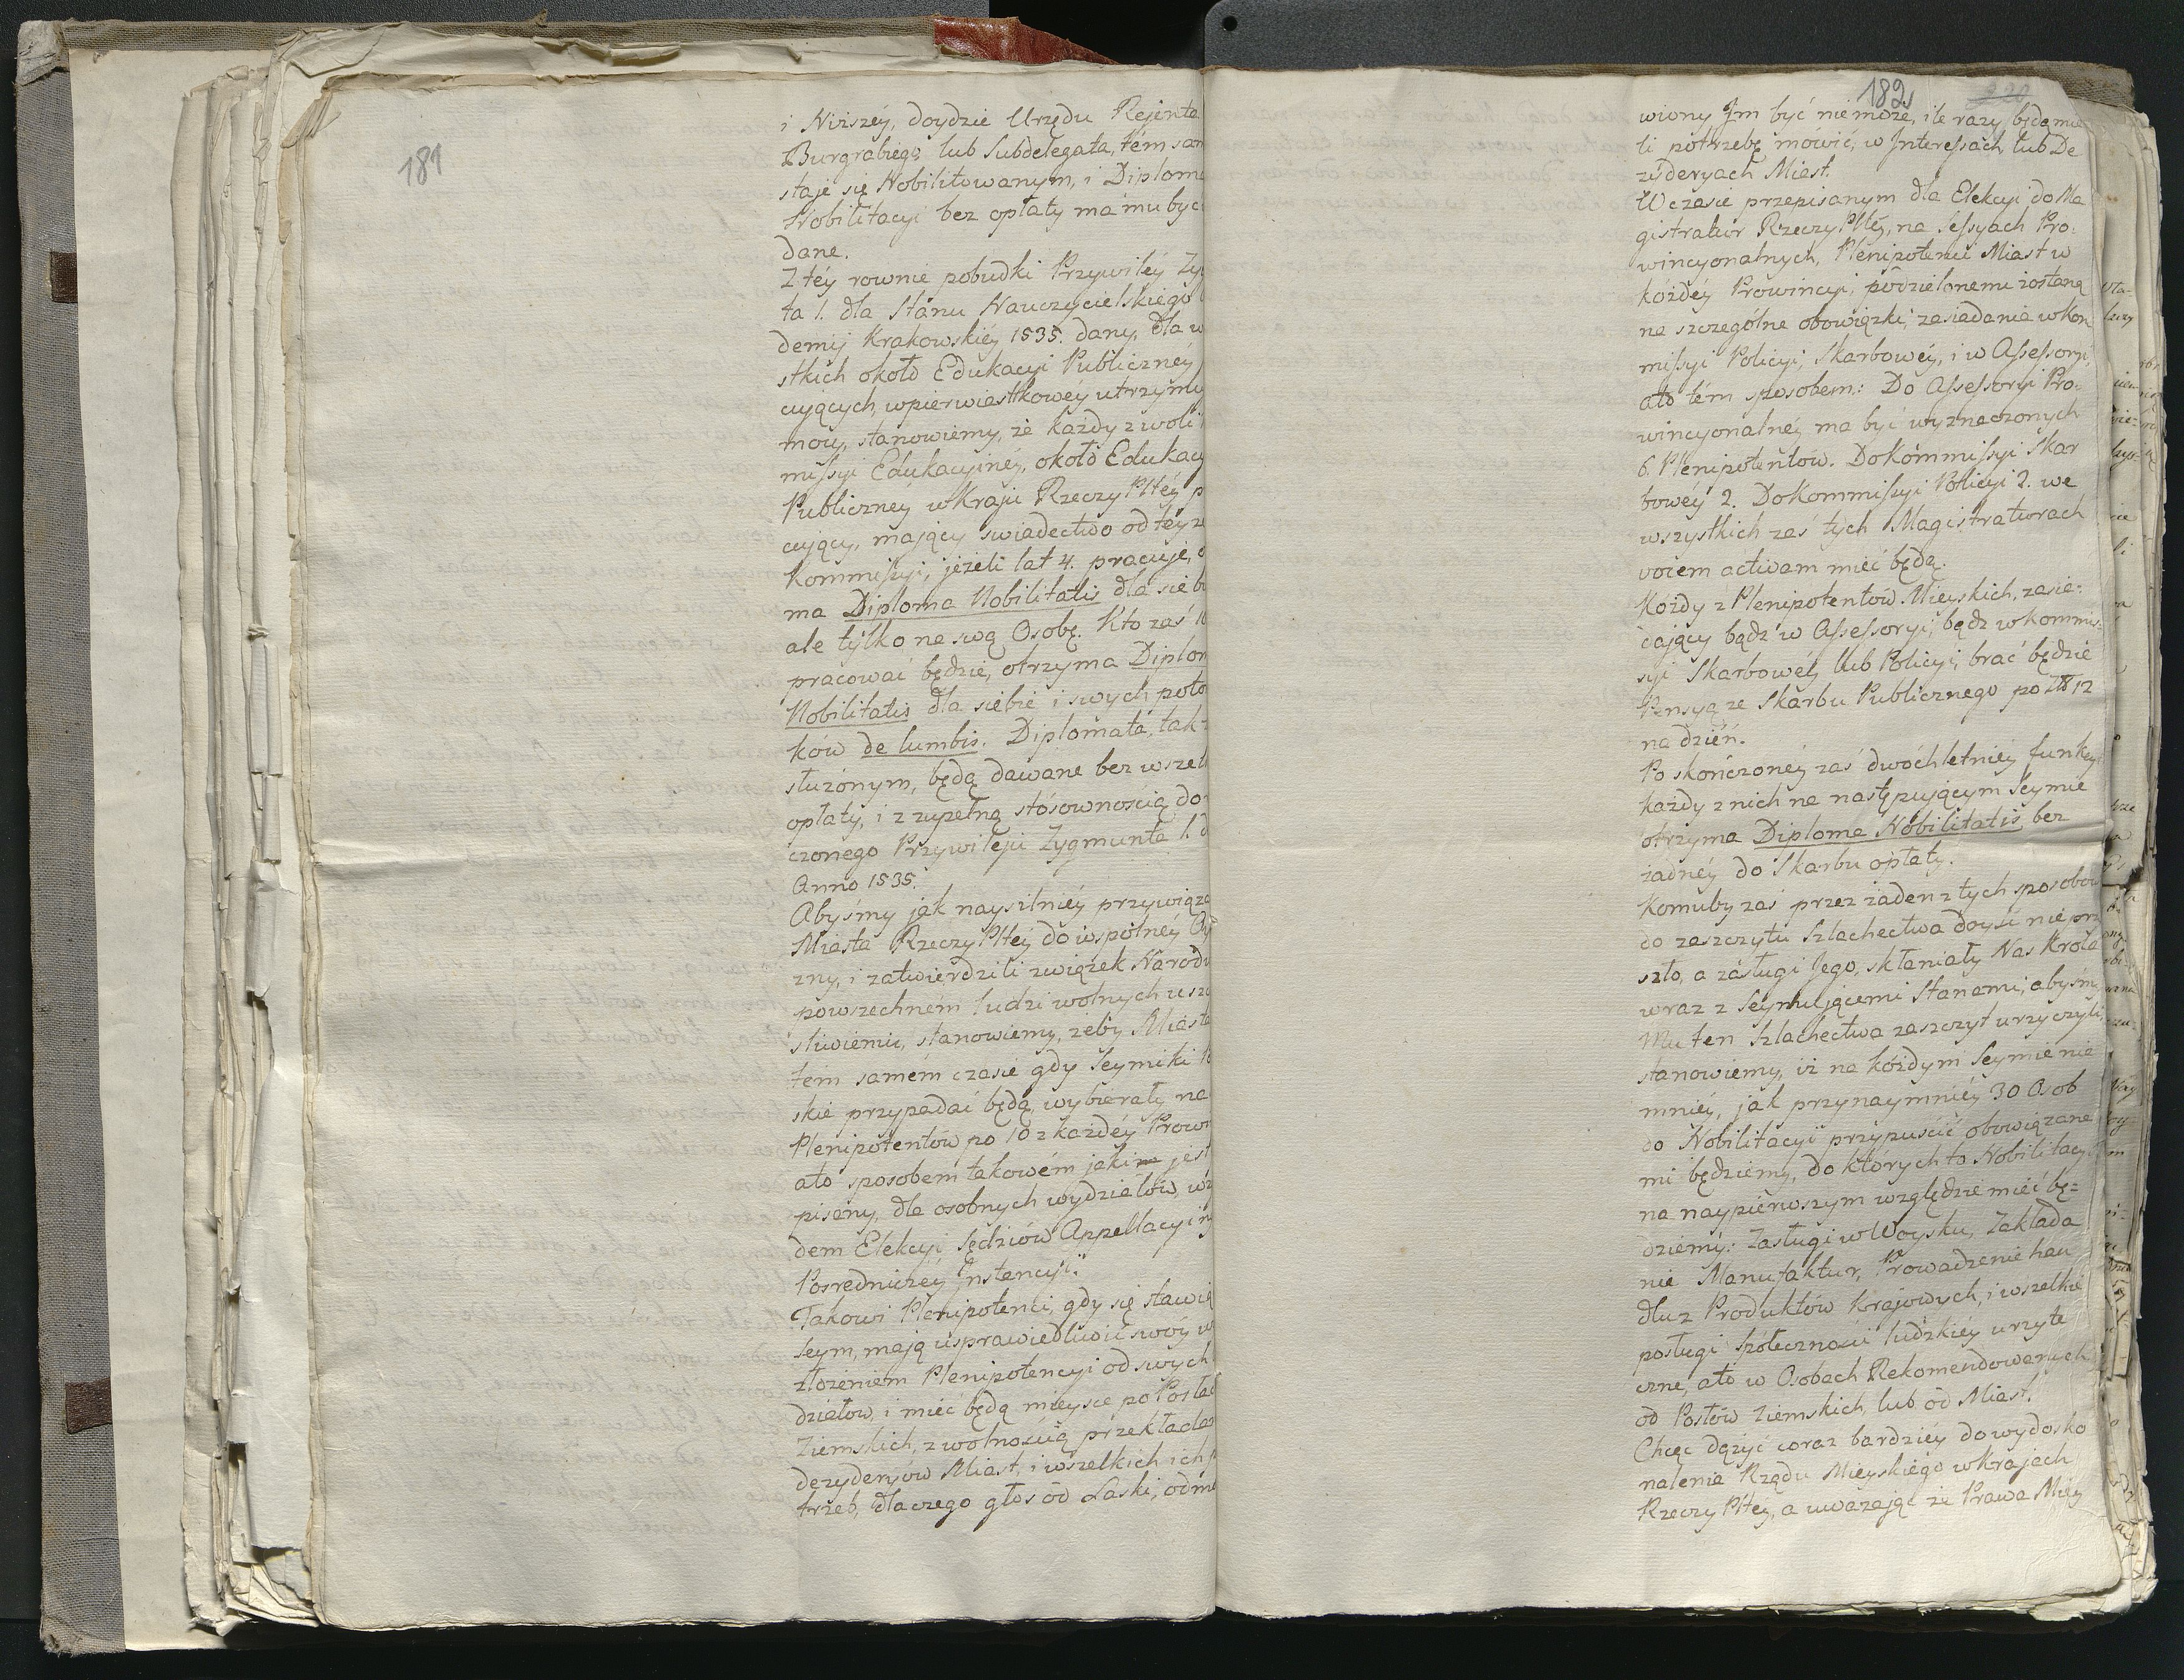 181
i Niższéy, doydzie Urzędu Rejenta
Burgrabiego lub Subdelegata, tém sam
staje się Nobilitowanym, i Diploma
Nobilitacyi bez opłaty ma mu być
dane.
Z téy rownie pobudki Przywiléy Zyg
ta I. dla Stanu Nauczycielskiego
demij Krakowskiéy 1535. dany, dla w
stkich około Edukacyi Publicznéy
cujących, w pierwiastkowéy utrzymu
mocy, stanowiemy, że każdy z woli
missyi Edukacyinéy, około Edukacy
Publicznéy w Kraju Rzeczy Pltéy p
cujący, mający swiadectwo od téyże
Kommissyi, jeżeli lat 4. pracuje, o
ma Diploma Nobilitatis dla siebi
ale tylko na swą Osobę. Kto zaś 10
pracować będzie, otrzyma Diplom
Nobilitatis dla siebie i swych poto
ków de lumbis. Diplomata, tak z
służonym, będą dawane bez wszel
opłaty, i z zupełną stósownością do
czonego Przywileju Zygmunta I. d
Anno 1535.
Abyśmy jak naysilniéy przywiąza
Miasta Rzeczy Pltéy do wspólnéy Oy
zny, i zatwierdzili związek Narodu
powszechném ludzi wolnych uszczę
śliwieniu, stanowiemy, żeby Miasta
tém samém czasie gdy Seymiki
skie przypadać będą, wybierały na
Plenipotentów po 10 z każdéy Prowi
a to sposobem takowém jaki jest
pisany, dla osobnych wydziałów, wz
dem Elekcyi Sędziów Appellacyiny
Posredniczéy Instancyi.
Takowi Plenipotenci, gdy się stawią
Seym, mają usprawiedliwić swóy w
złożeniem Plenipotencyi od swych
działow, i mieć będą mieysce po Posłac
Ziemskich, z wolnością przekładan
dezyderyów Miast, i wszelkich ich p
trzeb, dla czego głos od Laski, odmó
182
220
wiony Jm być nie może, ile razy będą mie
li potrzebę mówić, w Interessach, lub De
zyderyach Miast.
W czasie przepisanym dla Elekcyi do Ma
gistratur Rzeczy Pltéy, na Sessyach Pro.
wincyonalnych, Plenipotenci Miast w
kóżdéy Prowincyi, podzielonemi zostaną
na szczególne obowiązki, zasiadania w Kom
missyi Policyi, Skarbowéy, i w Assessoryi,
a to tém sposobem: Do Assessoryi Pro.
wincyonalnéy ma być wyznaczonych
6. Plenipotentow. Do Kommissyi Skar
bowéy 2. Do Kommissyi Policyi 2. we
wszystkich zaś tych Magistraturach
vocem activam mieć będą.
Kóżdy z Plenipotentów Mieyskich, zasia-
dający bądź w Assessoryi, bądź w Kommis:
syi Skarbowéy lub Policyi, brać będzie
Pensyą ze Skarbu Publicznego po Zł 12
na dzień.
Po skończonéy zaś dwóchletniéy funkcyi
każdy z nich na następującym Seymie
otrzyma Diploma Nobilitatis, bez
żadnéy do Skarbu opłaty.
Komuby zaś przez żaden z tych sposobów
do zaszczytu Szlachectwa dojść nie prz
szło, a zasługi Jego, skłaniały Nas Króla
wraz z Seymującemi Stanami, abyśmy
Mu ten Szlachectwa zaszczyt użyczyli,
stanowiemy, iż na kóżdym Seymie nie
mniéy, jak przynaymniéy 30 Osob
do Nobilitacyi przypuścić obowiązane
mi będziemy, do których to Nobilitacyi
na naypierwszym względzie mieć bę=
dziemy: Zasługi w Woysku, Zakłada
nie Manufaktur, Prowadzenie han
dlu z Produktów Krajowych, i wszelkie
posługi Społeczności ludzkiéy użyte
czne, a to w Osobach Rekomendowanych
od Posłów Ziemskich, lub od Miast.
Chcąc dążyć coraz bardziéy do wydosko
nalenia Rządu Mieyskiego w Krajach
Rzeczy Pltéy, a uważając że Prawa Miey